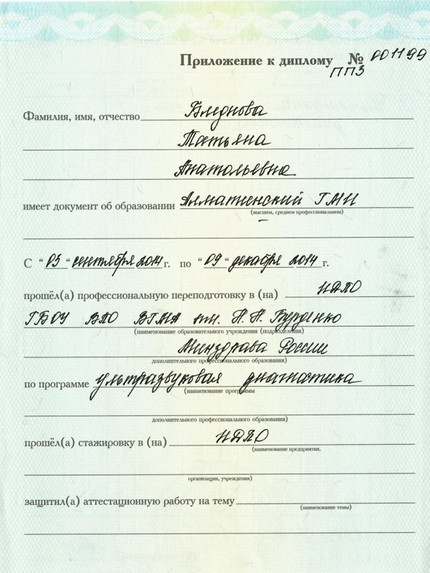 Приложение к диплому № 001199
ПП3
Фамилия, имя, отчество Бледнова
Татьяна
Анатольевна
имеет документ об образовании Алматинский ГМИ
(высшем, среднем профессиональном)
С "05" сентября 2014 г. по "09" декабря 2014 г.
прошёл(а) профессиональную переподготовку в (на) ИДПО
ГБОУ ВПО ВГМА им. Н.Н. Бурденко
(наименование образовательного учреждения (подразделения)
Минздрава России
дополнительного профессионального образования)
по программе ультразвуковая диагностика
(наименование программы
дополнительного профессионального образования)
прошёл(а) стажировку в (на) ИДПО
(наименование предприятия,
организации, учреждения)
защитил(а) аттестационную работу на тему
(наименование темы)